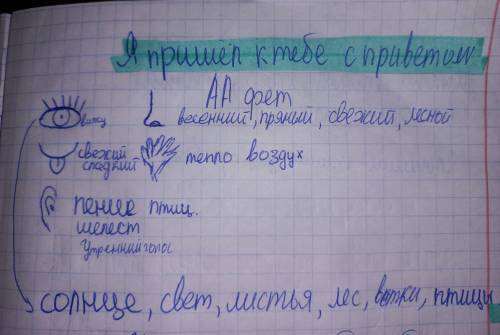 Я пришёл к тебе с приветом
АА фет
вижу
весенний, пряный, свежий, лесной
свежий
сладкий
тепло воздух
пение птиц.
шелест
Утренний голос
солнце, свет, листья, лес, ветки, птицы